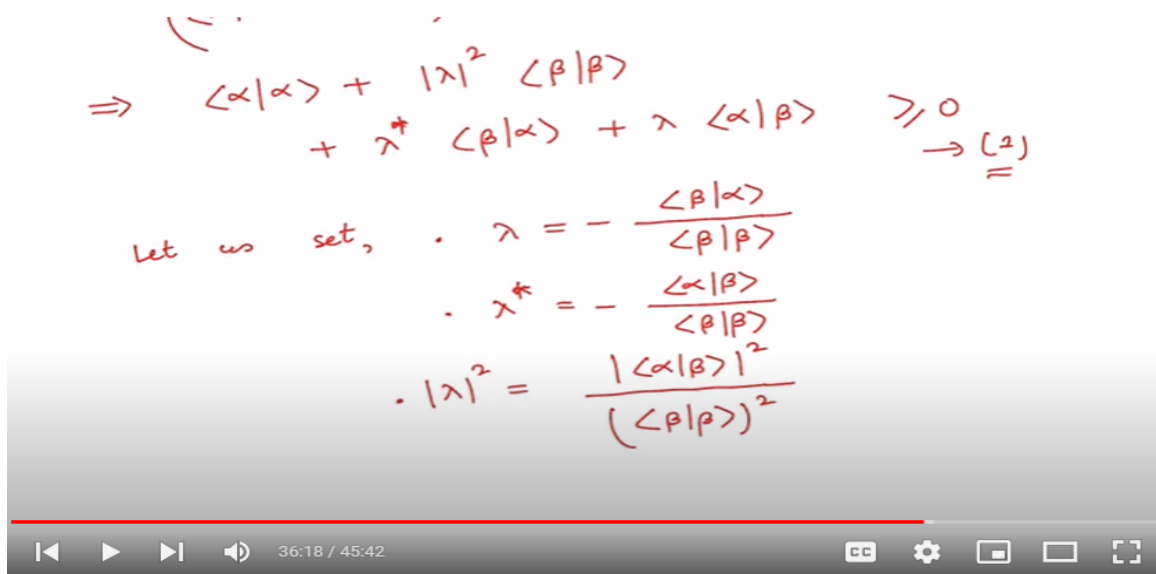 ⇒ <α|α> + |λ|² <β|β>
+ λ* <β|α> + λ <α|β> ≥ 0
→ (2)
Let us set, . λ = - <β|α> / <β|β>
. λ* = - <α|β> / <β|β>
. |λ|² = |<α|β>|² / (<β|β>)²
36:18 / 45:42
CC